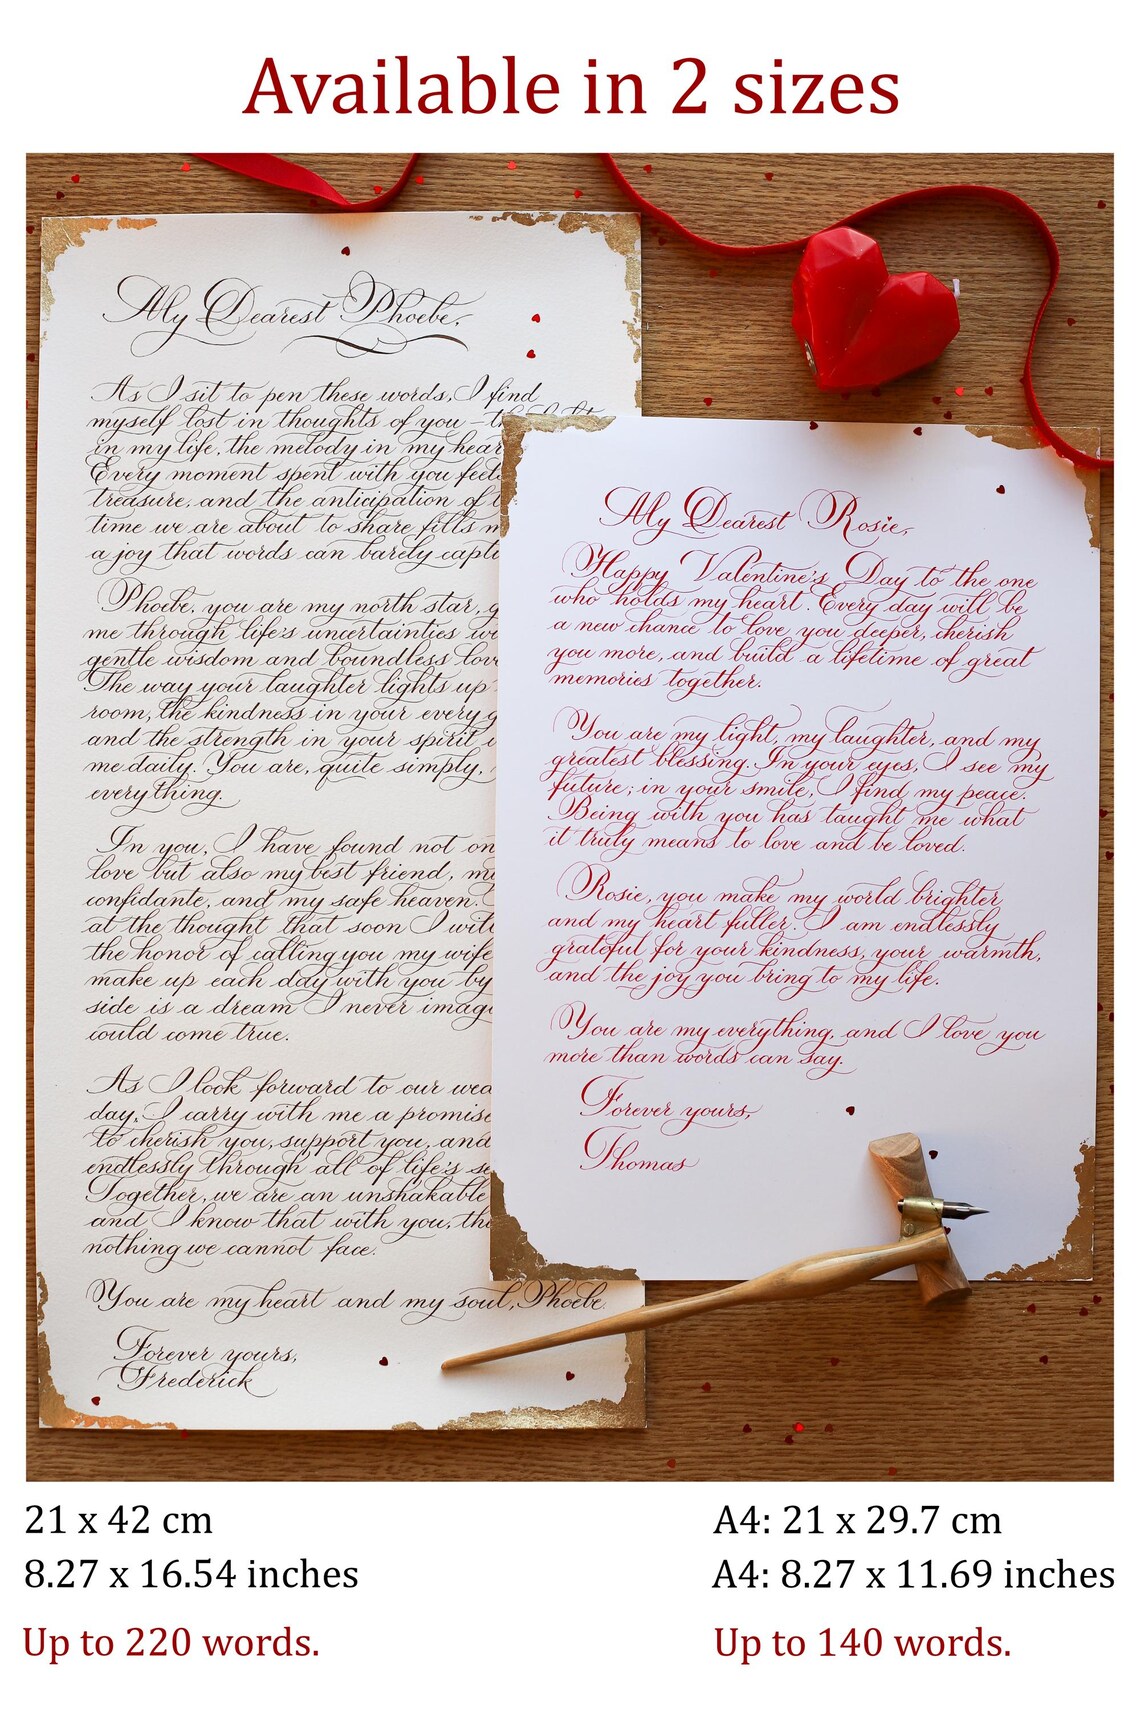 Available in 2 sizes
My Dearest Phoebe,
As I sit to pen these words, I find
myself lost in thoughts of you –
in my life, the melody in my
Every moment spent with you
treasure, and the anticipation of
time we are about to share fills
a joy that words can barely
Phoebe, you are my north star,
me through life's uncertainties
gentle wisdom and boundless
The way your laughter lights up
room, the kindness in your every
and the strength in your spirit
me daily. You are, quite simply,
everything.
In you, I have found not
love but also my best friend,
confidante, and my safe heaven.
at the thought that soon I
the honor of calling you my wife
make up each day with you by
side is a dream I never
could come true.
As I look forward to our
day, I carry with me a promise
to cherish you, support you, and
endlessly through all of life's
Together, we are an unshakable
and I know that with you,
nothing we cannot face.
You are my heart and my soul, Phoebe.
Forever yours,
Frederick
My Dearest Rosie,
Happy Valentine's Day to the one
who holds my heart. Every day will be
a new chance to love you deeper, cherish
you more, and build a lifetime of great
memories together.
You are my light, my laughter, and my
greatest blessing. In your eyes, I see my
future; in your smile, I find my peace.
Being with you has taught me what
it truly means to love and be loved.
Rosie, you make my world brighter
and my heart fuller. I am endlessly
grateful for your kindness, your warmth,
and the joy you bring to my life.
You are my everything, and I love you
more than words can say.
Forever yours,
Thomas
21 x 42 cm
8.27 x 16.54 inches
Up to 220 words.
A4: 21 x 29.7 cm
A4: 8.27 x 11.69 inches
Up to 140 words.